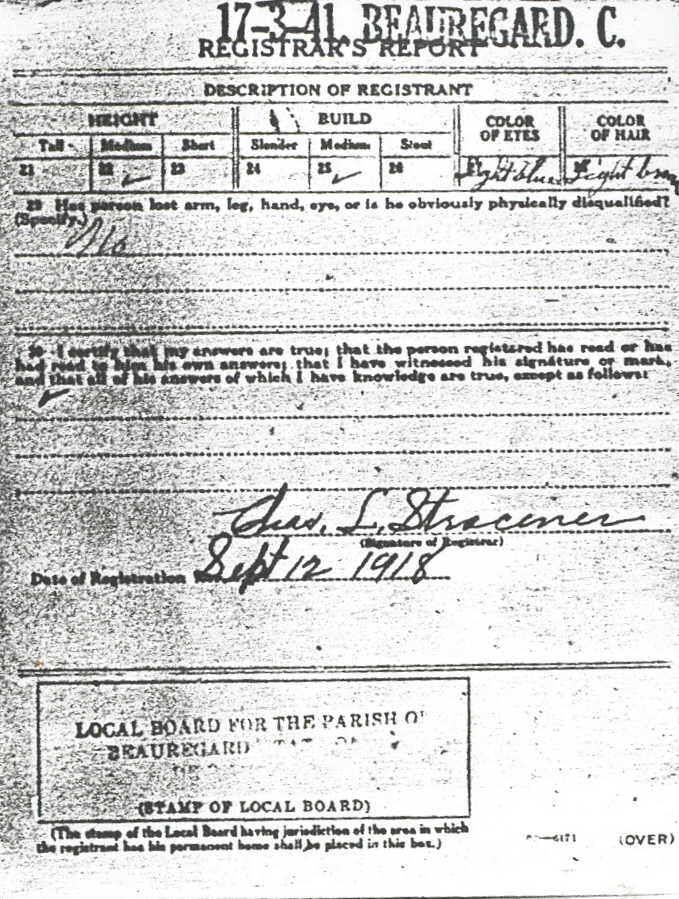 17-3-41. BEAUREGARD. C.
REGISTRAR'S REPORT
DESCRIPTION OF REGISTRANT
HEIGHT BUILD COLOR OF EYES COLOR OF HAIR
Tall Medium Short Slender Medium Stout
21 22 ✓ 23 24 25 ✓ 26 27 Light blue 28 Light brown
29 Has person lost arm, leg, hand, eye, or is he obviously physically disqualified?
(Specify.) No
30 I certify that my answers are true; that the person registered has read or has
had read to him his own answers; that I have witnessed his signature or mark,
and that all of his answers of which I have knowledge are true, except as follows:
✓
Chas. L. Stracener
(Signature of Registrar)
Date of Registration Sept 12 1918
LOCAL BOARD FOR THE PARISH OF
BEAUREGARD
(STAMP OF LOCAL BOARD)
(The stamp of the Local Board having jurisdiction of the area in which
the registrant has his permanent home shall be placed in this box.)
—6171 (OVER)